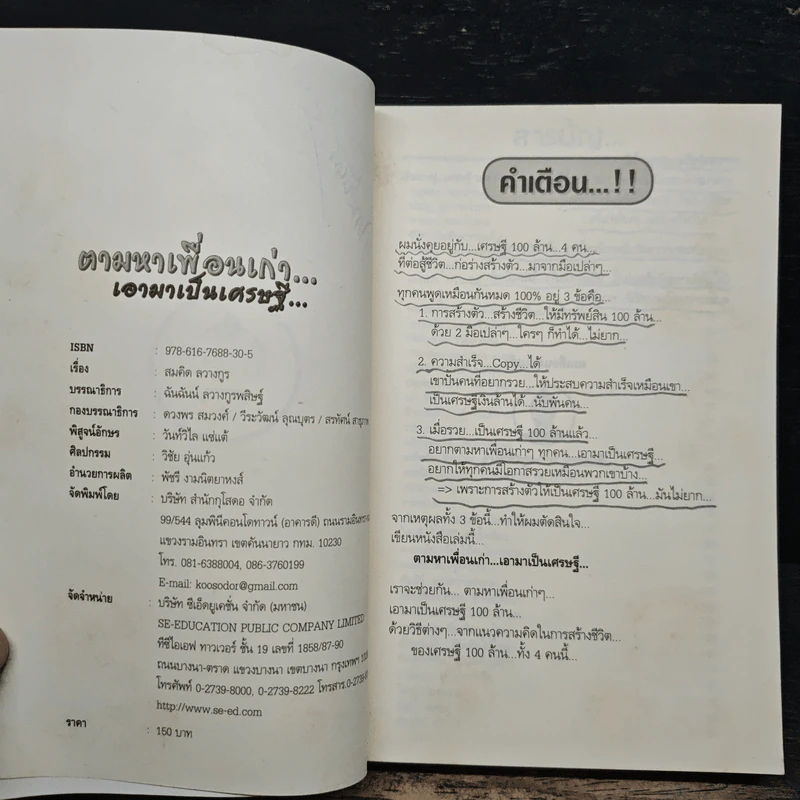 ตามหาเพื่อนเก่า...
เอามาเป็นเศรษฐี...
ISBN : 978-616-7688-30-5
เรื่อง : สมคิด ลวางกูร
บรรณาธิการ : ฉันฉันน์ ลวางกูรพสิษฐ์
กองบรรณาธิการ : ดวงพร สมวงศ์ / วีระวัฒน์ ลุณบุตร / สรทัศน์
พิสูจน์อักษร : วันท์วิไล แซ่แต้
ศิลปกรรม : วิชัย อุ่นแก้ว
อำนวยการผลิต : พัชรี งามนิตยาหงส์
จัดพิมพ์โดย : บริษัท สำนักกูโสดอ จำกัด
99/544 ลุมพินีคอนโดทาวน์ (อาคารดี) ถนนรามอินทรา
แขวงรามอินทรา เขตคันนายาว กทม. 10230
โทร. 081-6388004, 086-3760199
E-mail: koosodor@gmail.com
จัดจำหน่าย : บริษัท ซีเอ็ดยูเคชั่น จำกัด (มหาชน)
SE-EDUCATION PUBLIC COMPANY LIMITED
ทีซีไอเอฟ ทาวเวอร์ ชั้น 19 เลขที่ 1858/87-90
ถนนบางนา-ตราด แขวงบางนา เขตบางนา กรุงเทพฯ
โทรศัพท์ 0-2739-8000, 0-2739-8222 โทรสาร.
http://www.se-ed.com
ราคา : 150 บาท
คำเตือน...!!
ผมนั่งคุยอยู่กับ...เศรษฐี 100 ล้าน...4 คน...
ที่ต่อสู้ชีวิต...ก่อร่างสร้างตัว...มาจากมือเปล่าๆ...
ทุกคนพูดเหมือนกันหมด 100% อยู่ 3 ข้อคือ...
1. การสร้างตัว...สร้างชีวิต...ให้มีทรัพย์สิน 100 ล้าน...
ด้วย 2 มือเปล่าๆ...ใครๆ ก็ทำได้...ไม่ยาก...
2. ความสำเร็จ...Copy...ได้
เขาปั้นคนที่อยากรวย...ให้ประสบความสำเร็จเหมือนเขา...
เป็นเศรษฐีเงินล้านได้...นับพันคน...
3. เมื่อรวย...เป็นเศรษฐี 100 ล้านแล้ว...
อยากตามหาเพื่อนเก่าๆ ทุกคน...เอามาเป็นเศรษฐี...
อยากให้ทุกคนมีโอกาสรวยเหมือนพวกเขาบ้าง...
=> เพราะการสร้างตัวให้เป็นเศรษฐี 100 ล้าน...มันไม่ยาก...
จากเหตุผลทั้ง 3 ข้อนี้...ทำให้ผมตัดสินใจ...
เขียนหนังสือเล่มนี้...
ตามหาเพื่อนเก่า...เอามาเป็นเศรษฐี...
เราจะช่วยกัน... ตามหาเพื่อนเก่าๆ...
เอามาเป็นเศรษฐี 100 ล้าน...
ด้วยวิธีต่างๆ...จากแนวความคิดในการสร้างชีวิต...
ของเศรษฐี 100 ล้าน...ทั้ง 4 คนนี้...